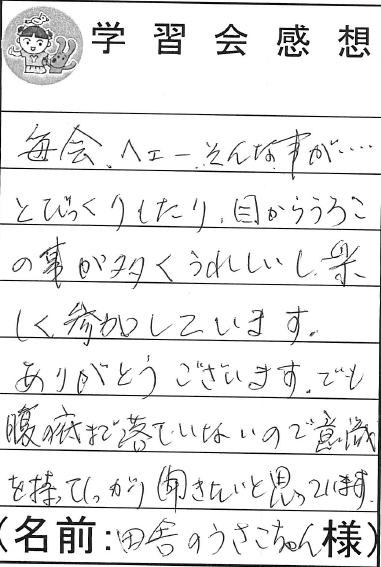 学習会感想
毎会、ヘェー、そんな事が・・・・
とびっくりしたり、目からうろこ
の事が多くうれしいし、楽
しく参加しています。
ありがとうございます。でも
腹の底まで落ていないので意識
を持ってしっかり聞きたいと思っています。
(名前:田舎のうさこちゃん様)